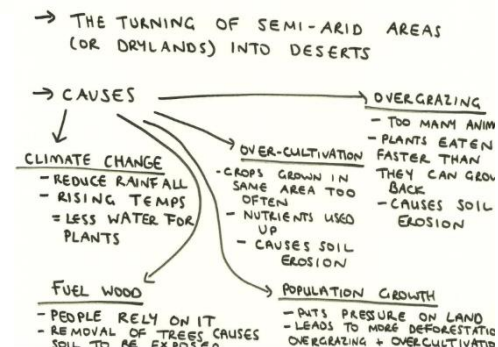 → THE TURNING OF SEMI-ARID AREAS
(OR DRYLANDS) INTO DESERTS
→ CAUSES
CLIMATE CHANGE
- REDUCE RAINFALL
- RISING TEMPS
= LESS WATER FOR
PLANTS
OVER-CULTIVATION
- CROPS GROWN IN
SAME AREA TOO
OFTEN
- NUTRIENTS USED
UP
- CAUSES SOIL
EROSION
OVERGRAZING
- TOO MANY
- PLANTS EATEN
FASTER THAN
THEY CAN
BACK
- CAUSES SOIL
EROSION
FUEL WOOD
- PEOPLE RELY ON IT
- REMOVAL OF TREES CAUSES
SOIL TO BE EXPOSED
POPULATION GROWTH
- PUTS PRESSURE ON LAND
- LEADS TO MORE
OVERGRAZING +